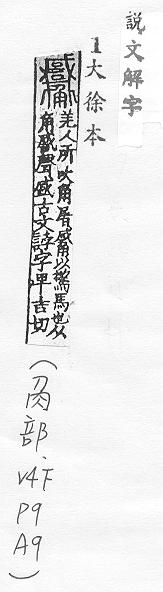 說文解字
1大徐本
羌人所吹角屠以驚馬也从
角聲古文誖字卑吉切
(角部.V4下P9A9)